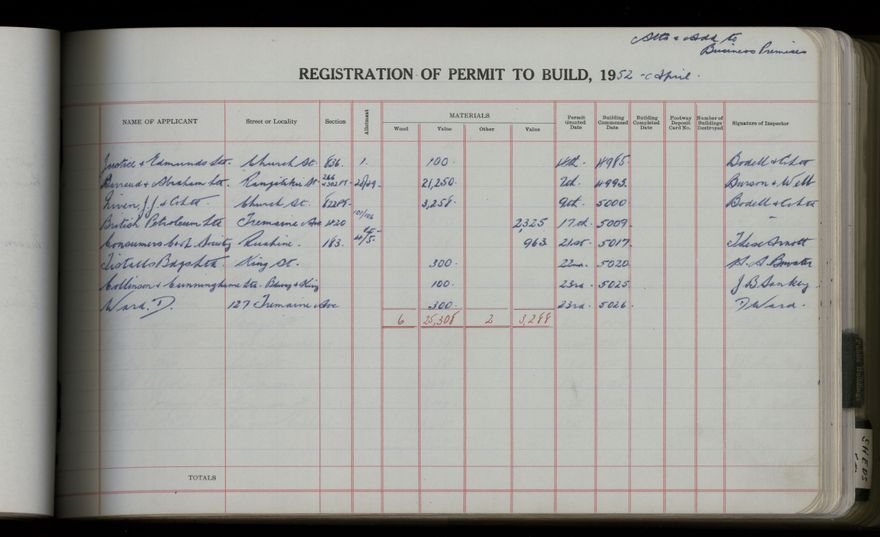 Alts & Add to
Business Premises
REGISTRATION OF PERMIT TO BUILD, 1952 - April.
NAME OF APPLICANT Street or Locality Section Allotment MATERIALS Wood Value Other Value Permit Granted Date Building Commenced Date Building Completed Date Footway Deposit Card No. Number of Buildings Destroyed Signature of Inspector
& Edmunds Ltd. Church St. 636. 1. 100. 4th. 4985. Bodell & Co Ltd
& Abraham Ltd. Rangitikei St. 28/29. 21,250. 7th. 4993. & Webb
J.J. & Co Ltd Church St. 3,258. 9th. 5000. Bodell & Co Ltd
British Petroleum Ltd Tremaine Ave 1420 2325 17th. 5009. "
Consumers Co-op Society Ruahine. 183. 963 21st. 5017.
Ltd. King St. 300. 22nd. 5020.
Collinson & Cunninghame Ltd. & King 100. 23rd. 5025. J.B. Sankey
Ward. D. 127 Tremaine Ave 300. 23rd. 5026. D Ward.
6 25,308 2 3,288
TOTALS
SHEDS